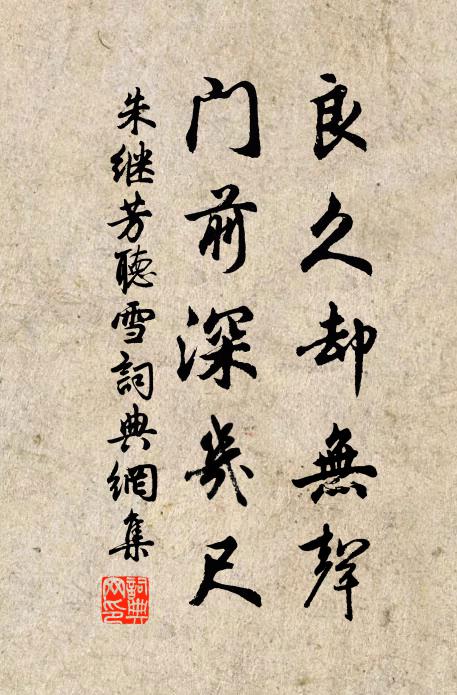 良久却無聲
门前深幾尺
朱继芳聽雪詞典網集
詞典网印